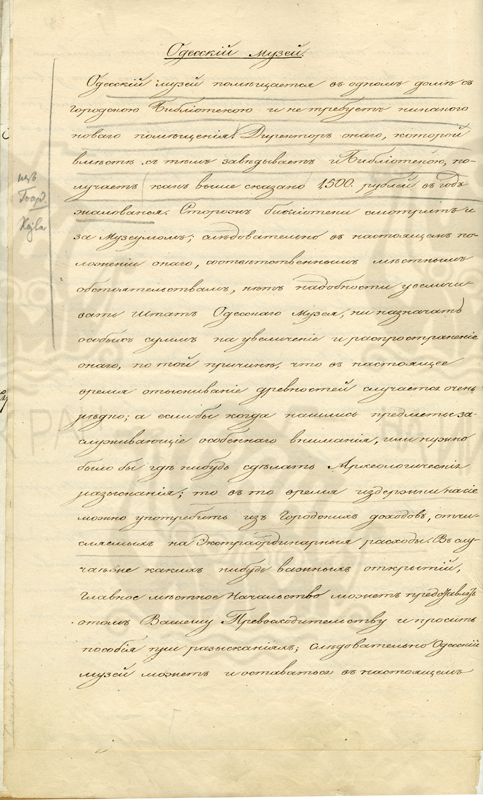 Одесскій музей.
Одесскій музей помѣщается въ одномъ домѣ съ
Городскою Библіотекою и не требуетъ никакого
новаго помѣщенія. Директоръ онаго, который
вмѣстѣ съ тѣмъ завѣдываетъ и Библіотекою, по-
лучаетъ какъ выше сказано 1500 рублей въ годъ
жалованья. Сторожъ библіотеки смотритъ и
за Музеумомъ; слѣдовательно въ настоящемъ по-
ложеніи онаго, соотвѣтственнымъ мѣстнымъ
обстоятельствамъ, нѣтъ надобности увеличи-
вать Штатъ Одесскаго Музея, ни назначать
особыхъ суммъ на увеличеніе и распространеніе
онаго, по той причинѣ, что въ настоящее
время отыскиваніе древностей случается очень
рѣдко; а если бы когда нашлись предметы за-
служивающіе особеннаго вниманія, или нужно
было бы гдѣ нибудь сдѣлать Археологическія
разысканія; то въ то время издержки на сіе
можно употребить изъ Городскихъ доходовъ, отчи-
сляемыхъ на Экстраординарныя расходы. Въ слу-
чаѣ же какихъ нибудь важныхъ открытій,
Главное мѣстное Начальство можетъ представить
о томъ Вашему Превосходительству и просить
пособія при разысканіяхъ; слѣдовательно Одесскій
музей можетъ и оставаться въ настоящемъ
изъ
Город.